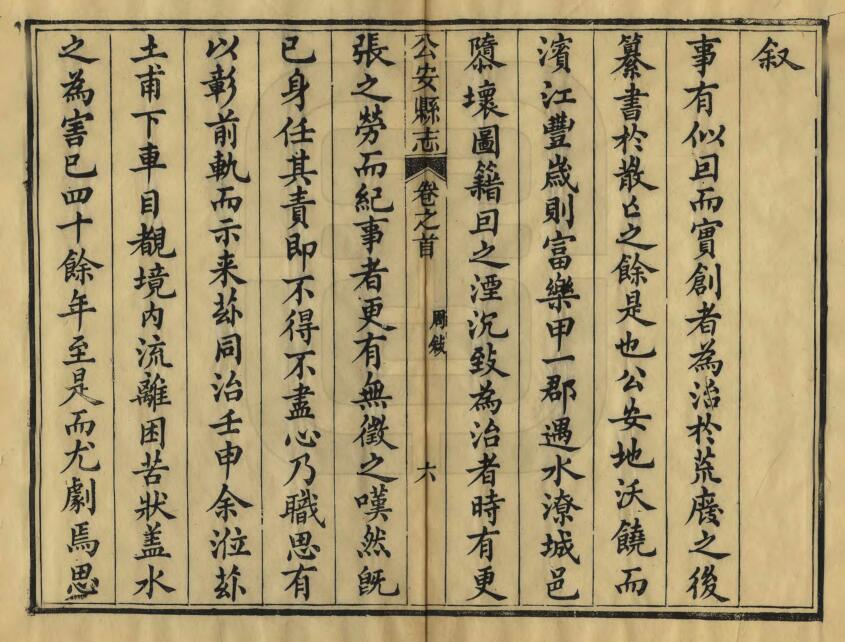 叙
事有似因而實創者為治於荒廢之後
纂書於散亡之餘是也公安地沃饒而
濱江豐歲則富樂甲一郡遇水潦城邑
隳壞圖籍因之湮沉致為治者時有更
公安縣志 卷之首 周敘 六
張之勞而紀事者更有無徵之嘆然旣
已身任其責即不得不盡心乃職思有
以彰前軌而示来茲同治壬申余涖茲
土甫下車目覩境内流離困苦狀盖水
之為害已四十餘年至是而尤劇焉思